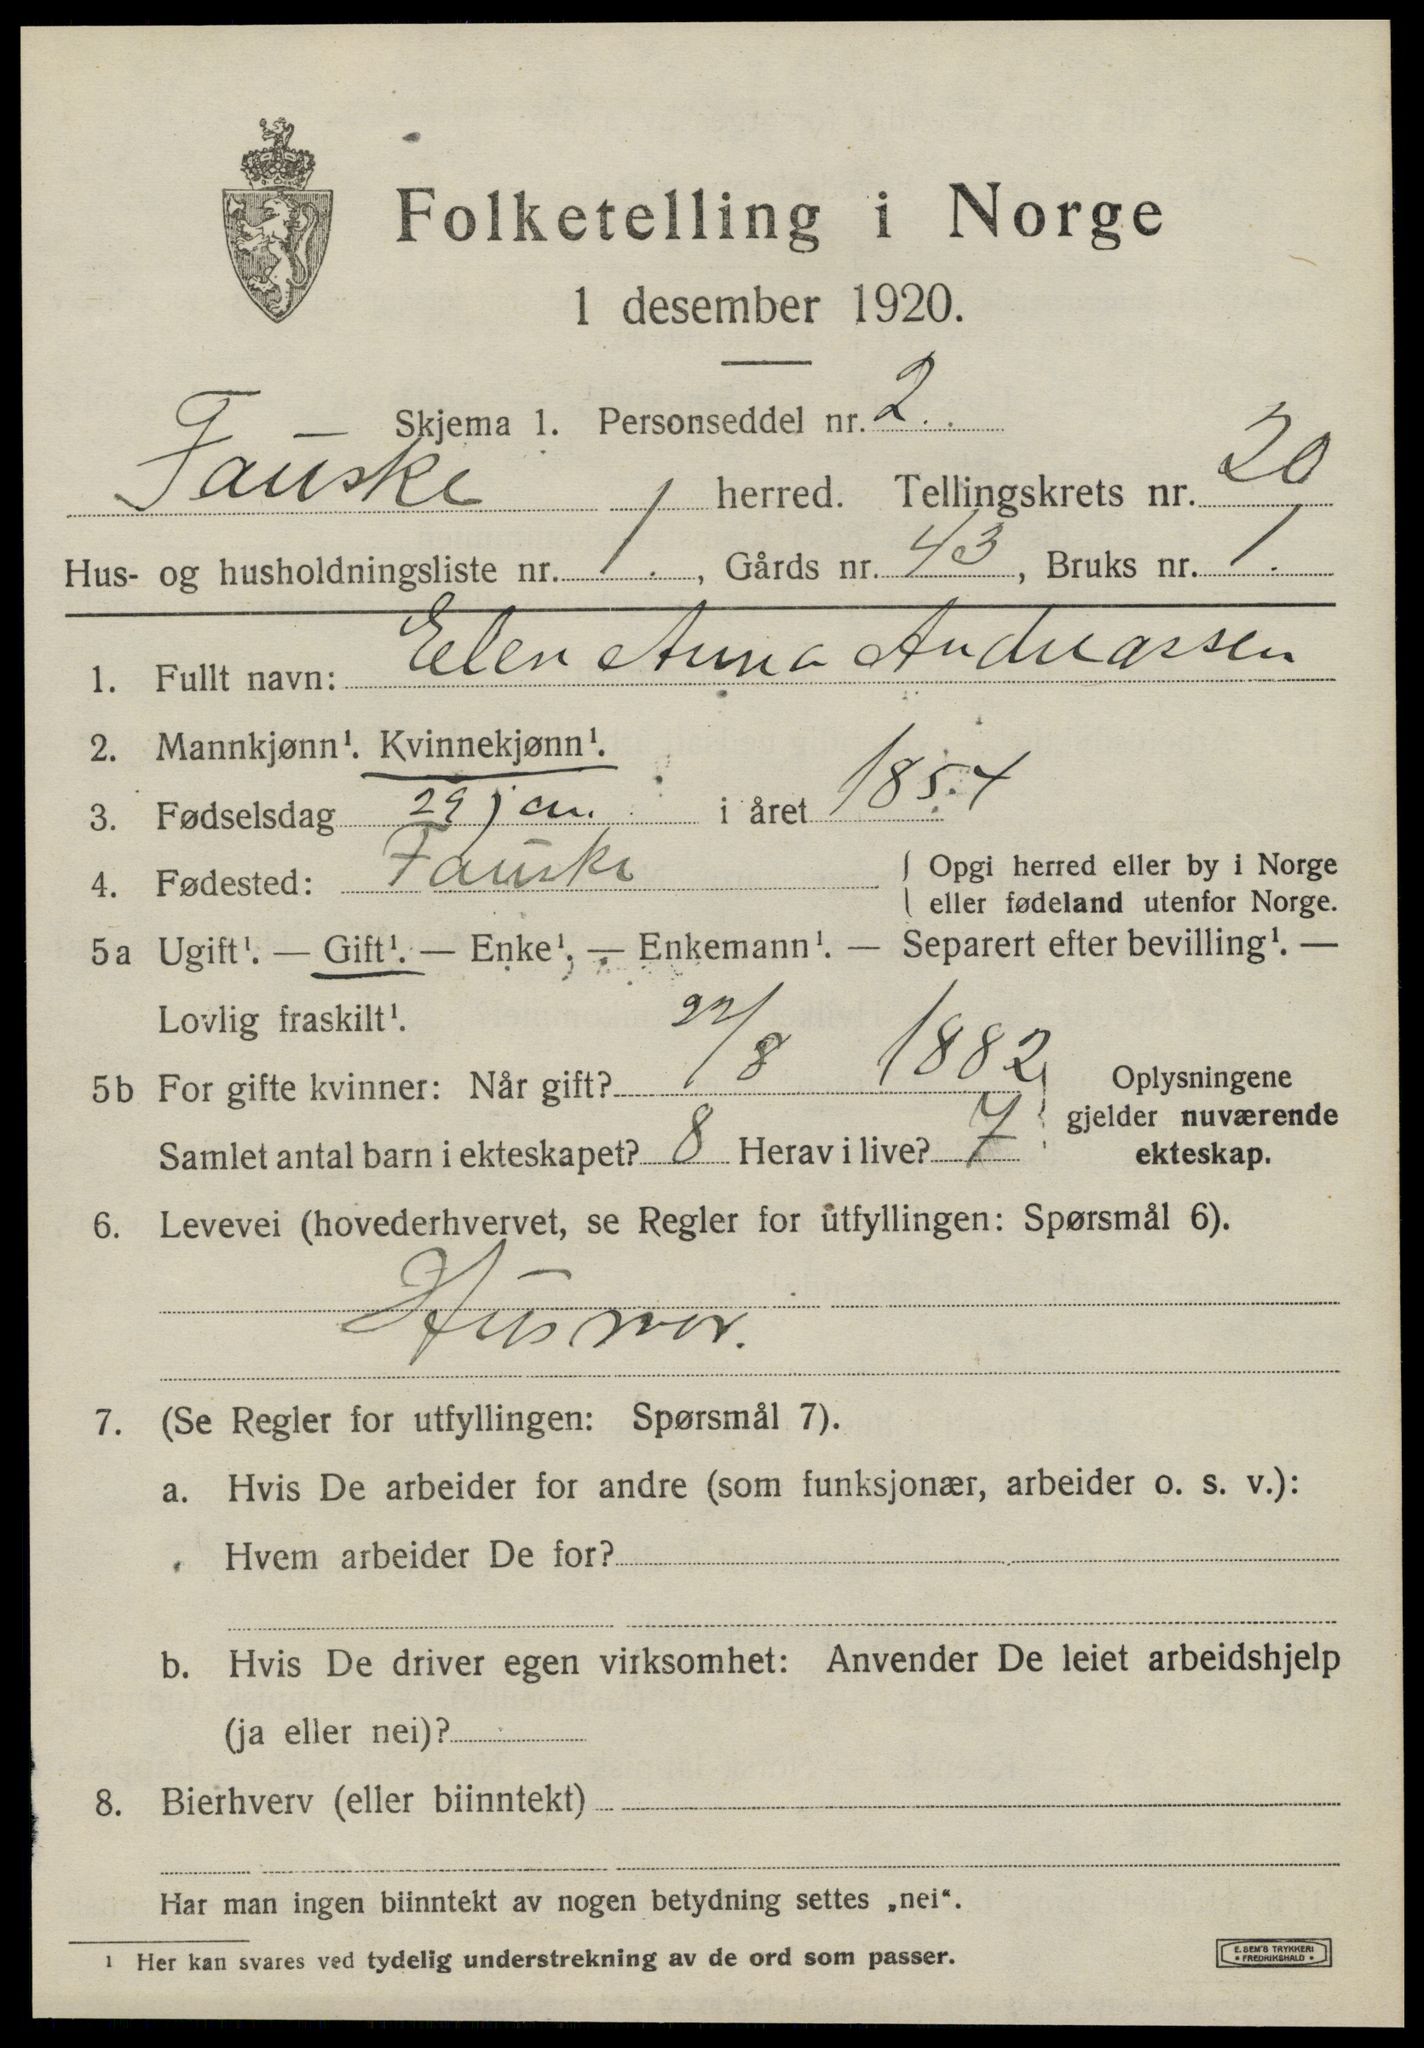 Folketelling i Norge
1 desember 1920.
Skjema 1. Personseddel nr. 2.
Fauske herred. Tellingskrets nr. 20
Hus- og husholdningsliste nr. 1., Gårds nr. 43, Bruks nr. 1.
1. Fullt navn: Elen Anna Andreassen
2. Mannkjønn¹. Kvinnekjønn¹.
3. Fødselsdag 29 jan. i året 1854
4. Fødested: Fauske { Opgi herred eller by i Norge
eller fødeland utenfor Norge.
5a Ugift¹. — Gift¹. — Enke¹. — Enkemann¹. — Separert efter bevilling¹. —
Lovlig fraskilt¹.
5b For gifte kvinner: Når gift? 22/8 1882
Samlet antal barn i ekteskapet? 8 Herav i live? 7
Oplysningene
gjelder nuværende
ekteskap.
6. Levevei (hovederhvervet, se Regler for utfyllingen: Spørsmål 6).
Husmor.
7. (Se Regler for utfyllingen: Spørsmål 7).
a. Hvis De arbeider for andre (som funksjonær, arbeider o. s. v.):
Hvem arbeider De for?
b. Hvis De driver egen virksomhet: Anvender De leiet arbeidshjelp
(ja eller nei)?
8. Bierhverv (eller biinntekt)
Har man ingen biinntekt av nogen betydning settes „nei“.
¹ Her kan svares ved tydelig understrekning av de ord som passer.
E. SEM'S TRYKKERI
• FREDRIKSHALD •